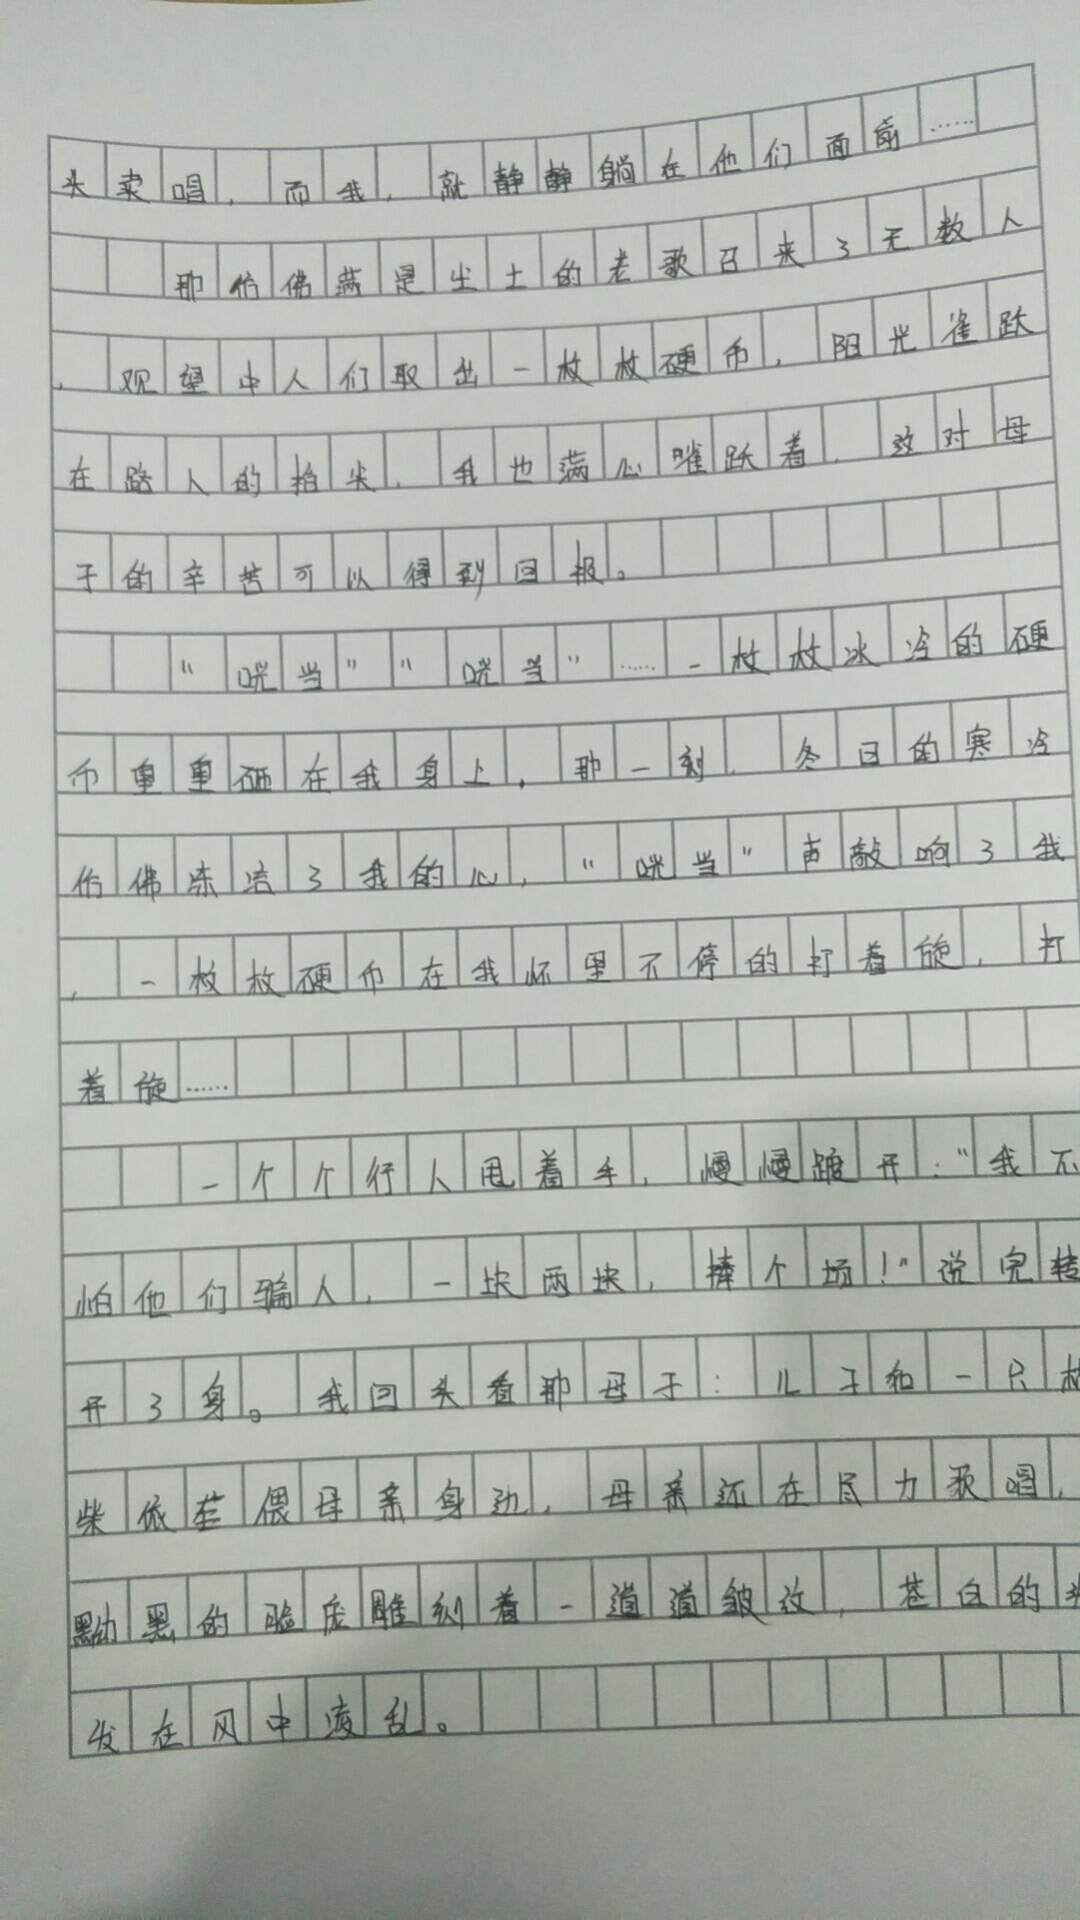 头卖唱，而我，就静静躺在他们面前……
那仿佛满是尘土的老歌召来了无数人
，观望中人们取出一枚枚硬币，阳光雀跃
在路人的指尖，我也满心嗺跃着，这对母
子的辛苦可以得到回报。
“咣当”“咣当”……一枚枚冰冷的硬
币重重砸在我身上，那一刻，冬日的寒冷
仿佛冻洁了我的心，“咣当”声敲响了我
，一枚枚硬币在我怀里不停的打着旋，打
着旋……
一个个行人甩着手，慢慢踱开：“我不
怕他们骗人，一块两块，捧个场！”说完转
开了身。我回头看那母子：儿子和一只
柴依在偎母亲身边，母亲还在尽力歌唱，
黝黑的脸庞雕刻着一道道皱纹，苍白的头
发在风中凌乱。